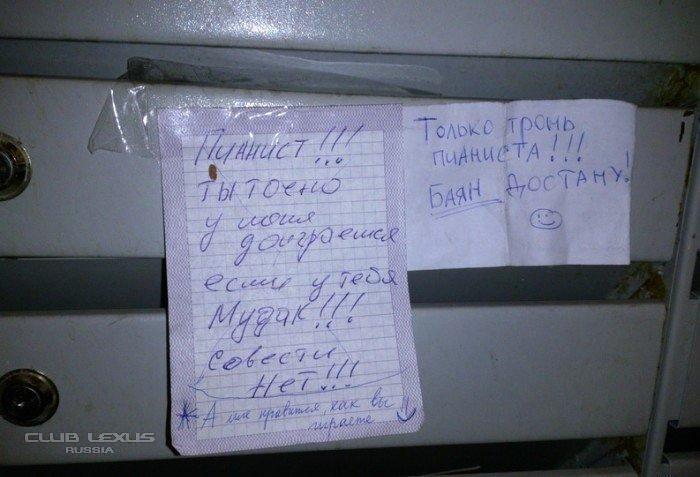 Пианист!!!
ты точно
у меня
доиграешся
если у тебя
Мудак!!!
совести
Нет!!!
* А мне нравится, как вы
играете
Только тронь
пианиста!!!
Баян достану!
CLUB LEXUS
RUSSIA